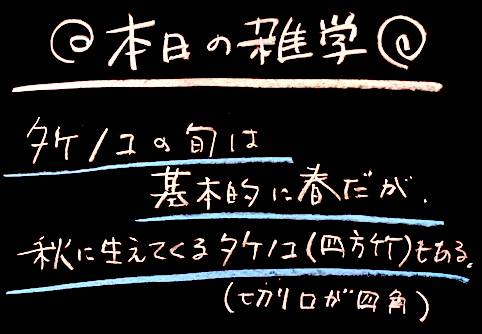 本日の雑学
タケノコの旬は
基本的に春だが、
秋に生えてくるタケノコ(四方竹)もある。
(切り口が四角)